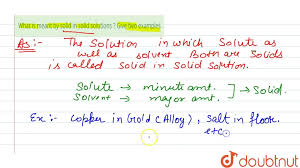 What is meant by solid in solid solutions ? Give two examples
As :- The Solution in which Solute as
well as solvent Both are Solids
is called Solid in Solid Solution.
Solute → minute amt.
Solvent → major amt.
] → Solid.
Ex :- copper in Gold (Alloy) , Salt in floor
etc
doubtnut